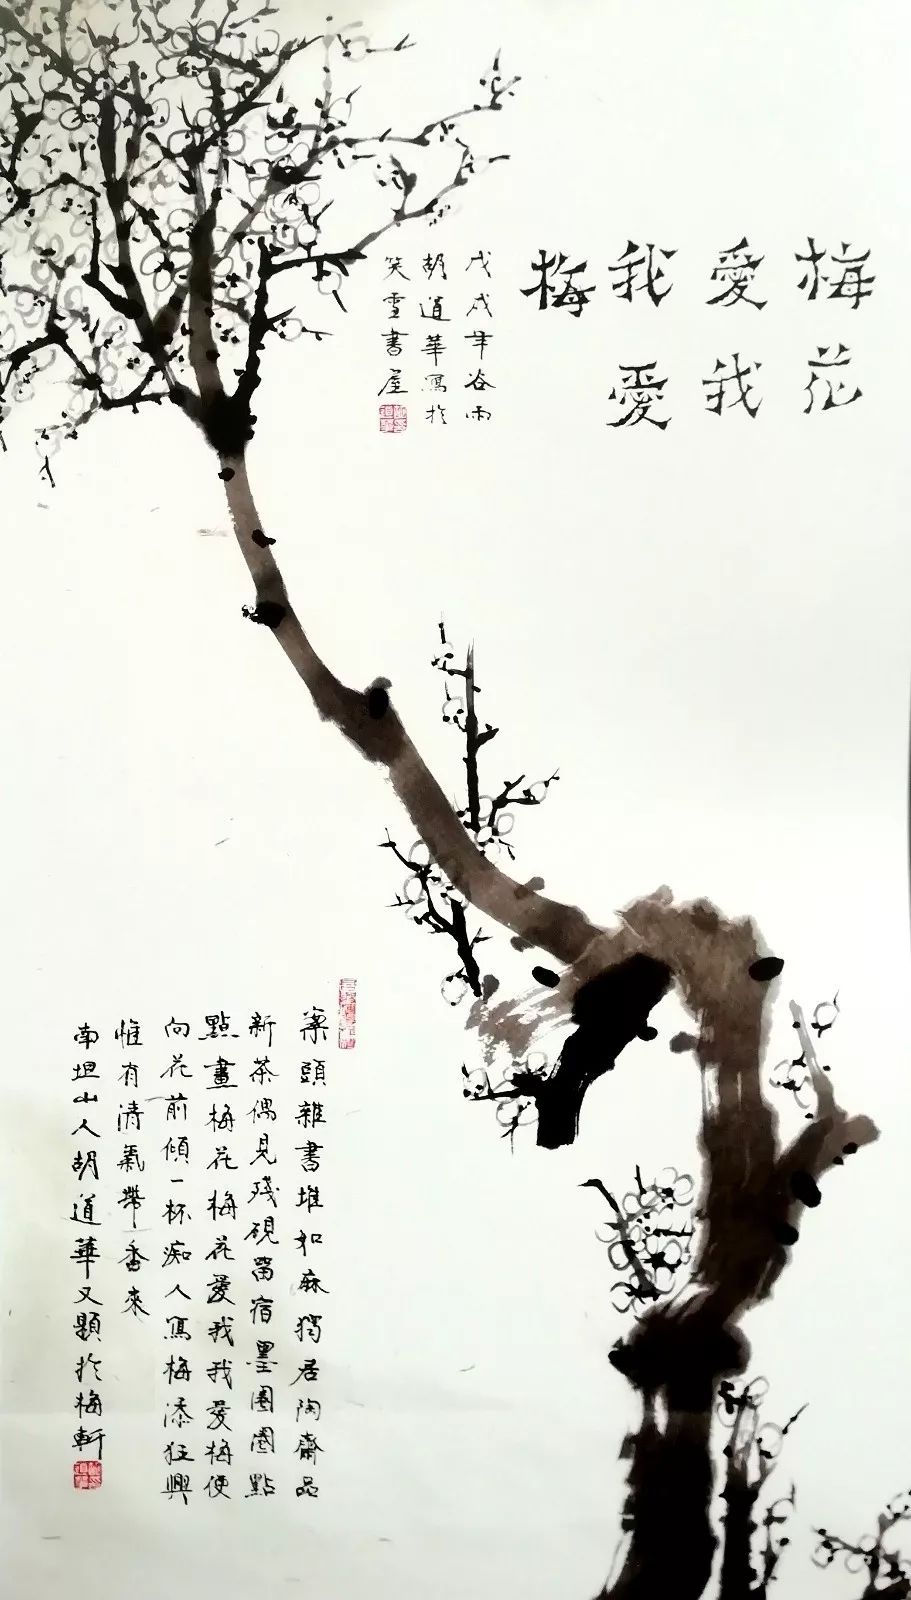 梅花
愛我
我愛
梅
戊戌年谷雨
胡道華寫於
笑雪書屋
案頭雜書堆如麻獨居陶齋品
新茶偶見殘硯留宿墨圈圈點
點畫梅花梅花愛我我愛梅便
向花前傾一杯痴人寫梅添狂興
惟有清氣帶香來
南坦山人胡道華又題於梅軒